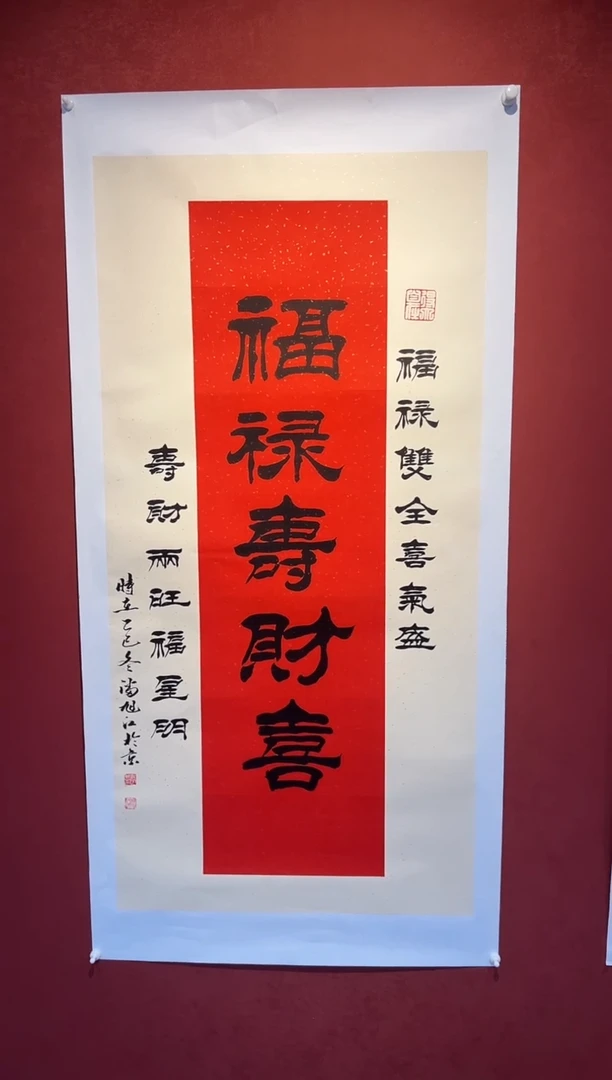 福禄壽財喜
福禄雙全喜氣盛
壽財兩旺福星明
時在乙巳冬潘旭江於京